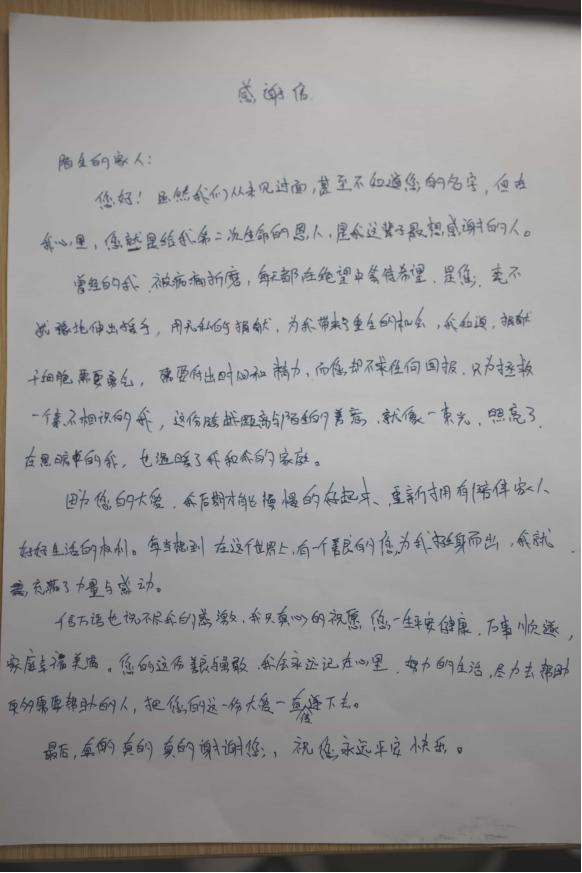 感谢信
陌生的家人：
您好！虽然我们从未见过面，甚至不知道您的名字，但在
我心里，您就是给我第二次生命的恩人，是我这辈子最想感谢的人。
曾经的我，被病痛折磨，每天都在绝望中等待希望。是您，毫不
犹豫地伸出援手，用无私的捐献，为我带来了重生的机会，我知道，捐献
干细胞需要勇气，需要付出时间和精力，而您却不求任何回报，只为拯救
一个素不相识的我，这份跨越距离与陌生的善意，就像一束光，照亮了
在黑暗中的我，也温暖了我和我的家庭。
因为您的大爱，我后期才能慢慢的好起来、重新拥有陪伴家人、
好好生活的权利。每当想到在这个世界上，有一个善良的您，为我挺身而出，我就
充满了力量与感动。
千言万语也说不尽我的感激，我只真心的祝愿您一生平安健康，万事顺遂，
家庭幸福美满。您的这份善良与勇敢，我会永远记在心里，努力的生活，尽力去帮助
更多需要帮助的人，把您的这一份大爱一直传递下去。
最后，真的真的真的谢谢您，祝您永远平安快乐。